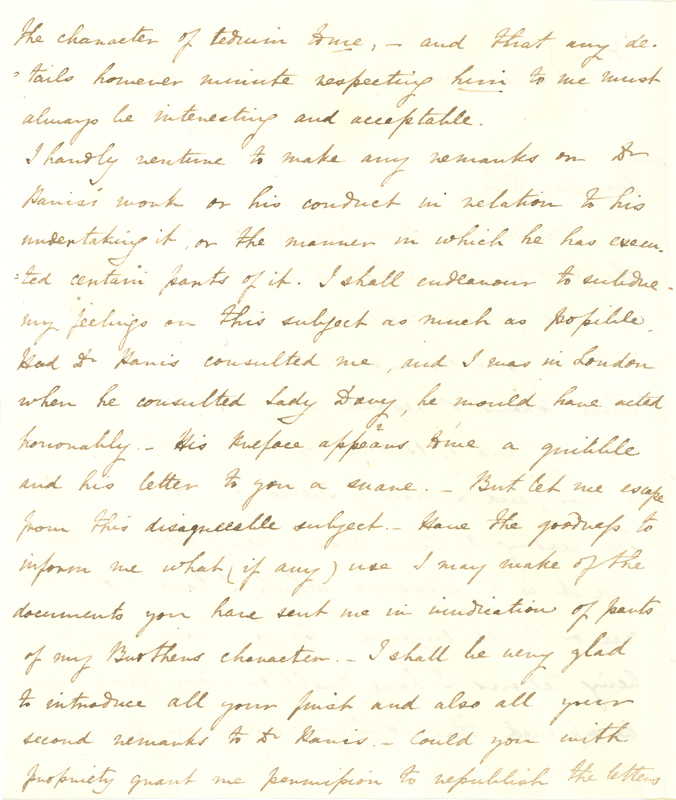 the character of tedium to me, – and that any de-
=tails however minute respecting him to me must
always be interesting and acceptable.
I hardly venture to make any remarks on Dr
Paris's work or his conduct in relation to his
undertaking it, or the manner in which he has execu-
=ted certain parts of it. I shall endeavour to subdue
my feelings on this subject as much as possible.
Had Dr Paris consulted me, and I was in London
when he consulted Lady Davy, he would have acted
honorably. – His Preface appears to me a quibble
and his letter to you a snare. – But let me escape
from this disagreeable subject. – Have the goodness to
inform me what (if any) use I may make of the
documents you have sent me in vindication of parts
of my Brothers character. – I shall be very glad
to introduce all your first and also all your
second remarks to Dr Paris. – Could you with
propriety grant me permission to republish the letters